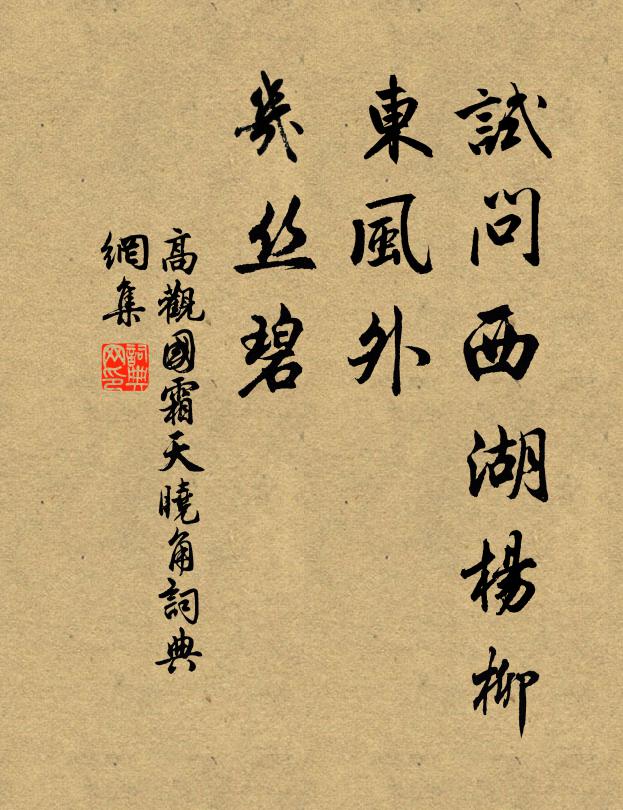 試問西湖楊柳
東風外
幾丝碧
高觀國霜天曉角詞典
網集
詞典
网印